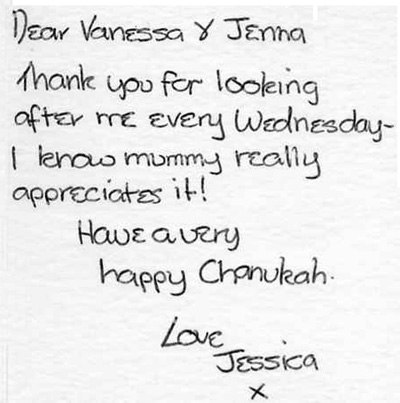 Dear Vanessa & Jenna
Thank you for looking
after me every Wednesday-
I know mummy really
appreciates it!
Have a very
happy Chanukah.
Love
Jessica
x